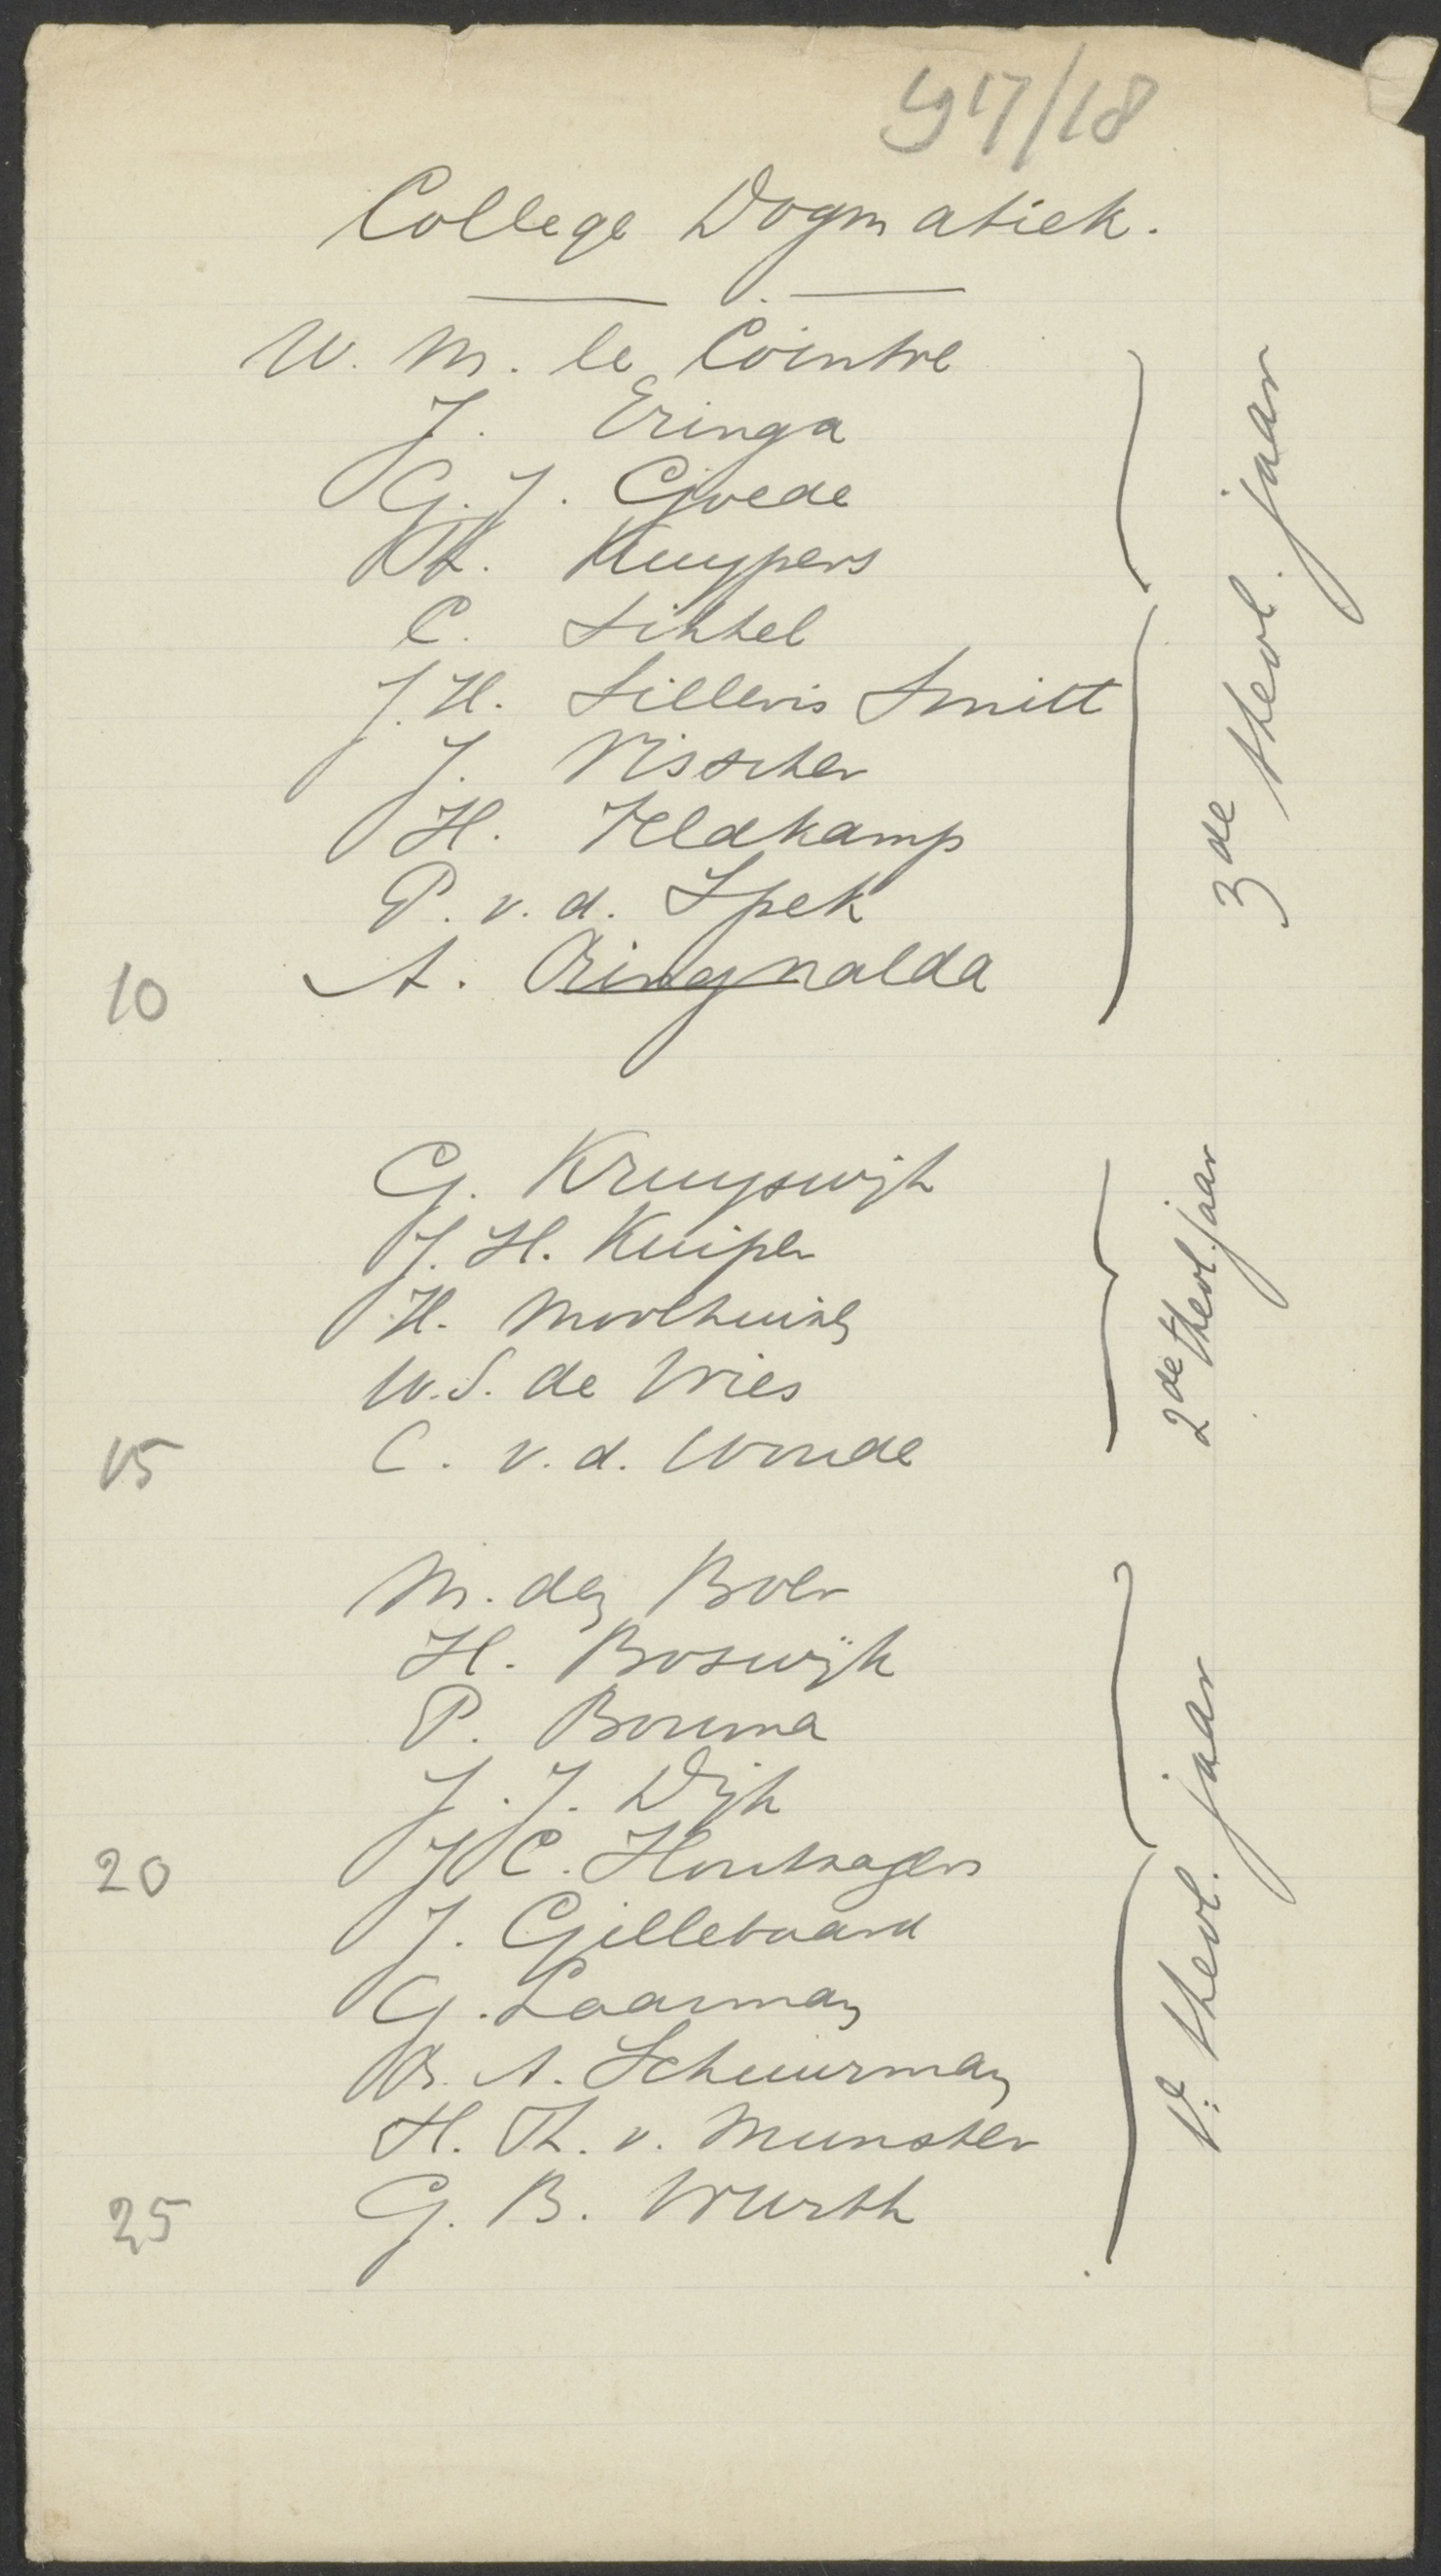 1917/18
College Dogmatiek.
W. M. le Cointre
J. Eringa
G. J. Goede
K. Kuypers
C. Sikkel
J. H. Sillevis Smitt
J. Visscher
H. Veldkamp
P. v. d. Spek
10 A. Ringnalda
3de theol. jaar
G. Kruyswijk
J. H. Kuiper
H. Moolhuizen
W. S. de Vries
15 C. v. d. Woude
2de theol. jaar
M. den Boer
H. Boswijk
P. Bouma
J. J. Dijk
20 J. C. Houtzagers
J. Gillebaard
G. Laarman
B. A. Schuurman
H. Th. v. Munster
25 G. B. Wurth
1e theol. jaar